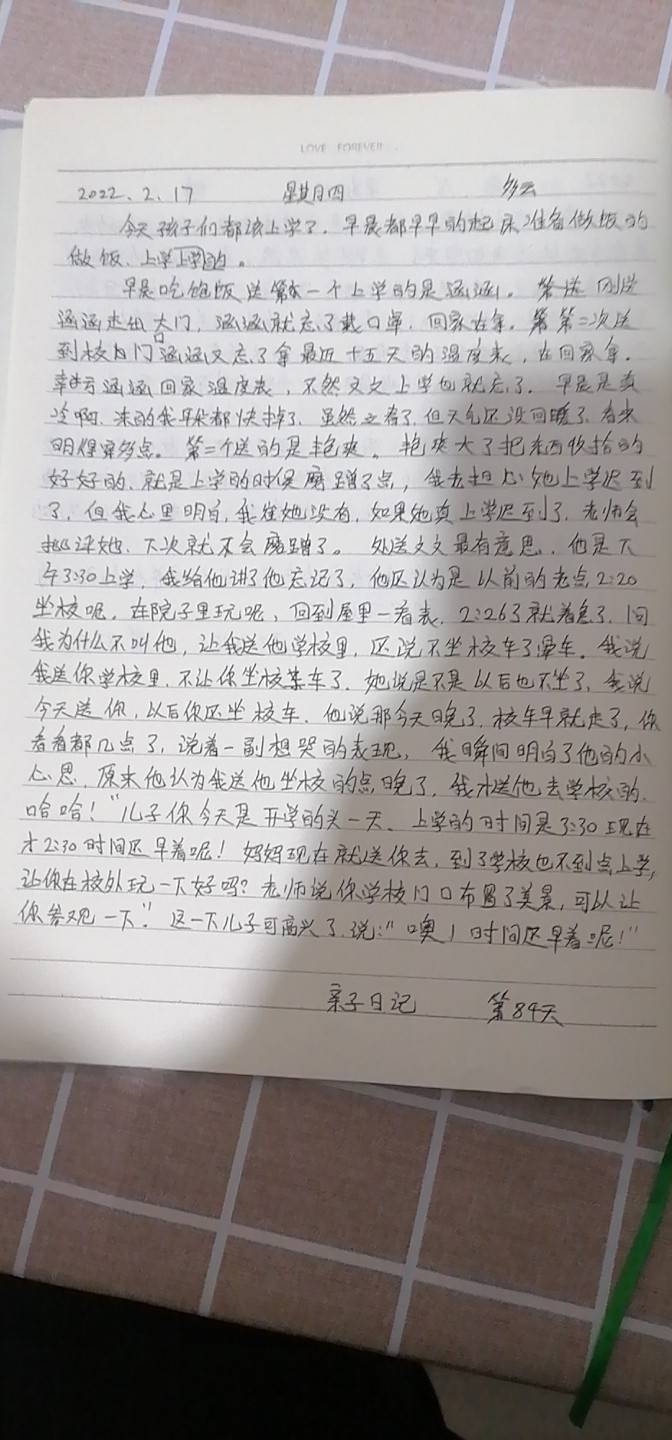 LOVE FOREVER
2022.2.17 星期四 多云
今天孩子们都该上学了.早晨都早早的起床准备做饭的
做饭、上学上学的。
早晨吃饱饭送第一个上学的是涵涵。刚送
涵涵走出大门,涵涵就忘了戴口罩,回家去拿。第二次送
到校门口涵涵又忘了拿最近十五天的温度表,在回家拿.
幸亏涵涵回家温度表,不然又之上学也就忘了.早晨是真
冷啊.冻的我耳朵都快掉了.虽然立春了,但天气还没回暖了.看来
明得穿多点。第二个送的是艳爽。艳爽大了把东西收拾的
好好的.就是上学的时候磨蹭了点,我去担心她上学迟到
了,但我心里明白,我催她没有,如果她真上学迟到了.老师会
批评她.下次就不会磨蹭了。处送文文最有意思.他是下
午3:30上学,我给他讲了他忘记了,他还认为是以前的老点2:20
坐校呢.在院子里玩呢,回到屋里一看表.2:26了就着急了.问
我为什么不叫他,让我送他学校里,还说不坐校车了晕车.我说
我送你学校里.不让你坐校车了.她说是不是以后也不坐了,我说
今天送你,以后你还坐校车.他说那今天晚了.校车早就走了,你
看看都几点了,说着一副想哭的表现,我瞬间明白了他的小
心思.原来他认为我送他坐校的点晚了,我才送他去学校的.
哈哈!“儿子你今天是开学的头一天、上学的时间是3:30现在
才2:30时间还早着呢!妈妈现在就送你去,到了学校也不到点上学,
让你在校外玩一下好吗?老师说你学校门口布置了美景,可以让
你参观一下.”这一下儿子可高兴了.说:“噢!时间还早着呢!”
亲子日记 第84天